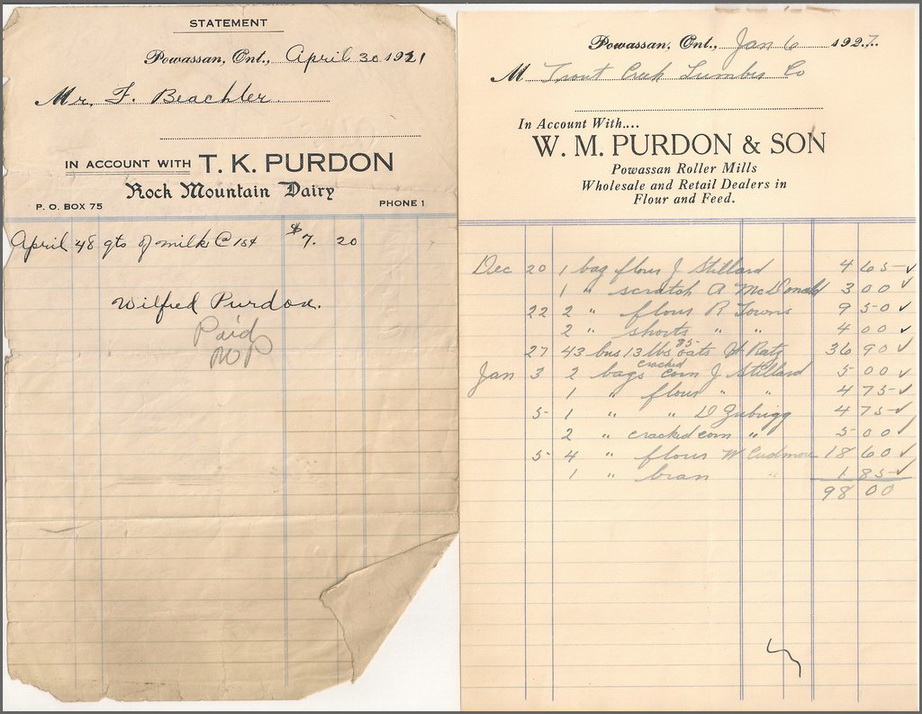 STATEMENT
Powassan, Ont., April 30 1921
Mr. F. Beachler
IN ACCOUNT WITH T. K. PURDON
Rock Mountain Dairy
P. O. BOX 75 PHONE 1
April 48 qts of milk @ 15¢ $7. 20
Wilfred Purdon.
Paid
WP
Powassan, Ont., Jan 6 1927.
M Trout Creek Lumber Co
In Account With....
W. M. PURDON & SON
Powassan Roller Mills
Wholesale and Retail Dealers in
Flour and Feed.
Dec 20 1 bag flour J Stillard 4 65 ✓
1 " scratch A McDonald 3 00 ✓
22 2 " flour R Towns 9 50 ✓
2 " shorts " " 4 00 ✓
27 43 bus 13 lbs oats 85 W Ratz 36 90 ✓
Jan 3 2 bags cracked corn J Stillard 5 00 ✓
1 " flour " " 4 75 ✓
5 1 " " D Zubrigg 4 75 ✓
2 " cracked corn " 5 00 ✓
5 4 " flour W Cudmore 18 60 ✓
1 " bran " 1 85 ✓
98 00